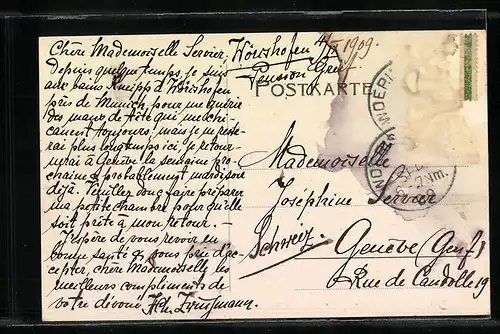 Wörishofen 4/II 1909.
Pension Greif
Chère Mademoiselle Servier,
Depuis quelque temps je suis
aux bains Kneipp à Wörishofen
près de Munich pour me guérir
des maux de tête qui me chi-
canent toujours; mais je ne reste-
rai plus longtemps ici, je retour-
nerai à Genève la semaine pro-
chaine & probablement mardi soir
déjà. Veuillez donc faire préparer
ma petite chambre pour qu'elle
soit prête à mon retour.
J'espère de vous revoir en
bonne santé & vous prie d'ac-
cepter, chère Mademoiselle, les
meilleurs compliments de
votre dévoué
POSTKARTE
Mademoiselle
Joséphine Servier
Genève (Genf)
Schweiz.
Rue de Candolle 19